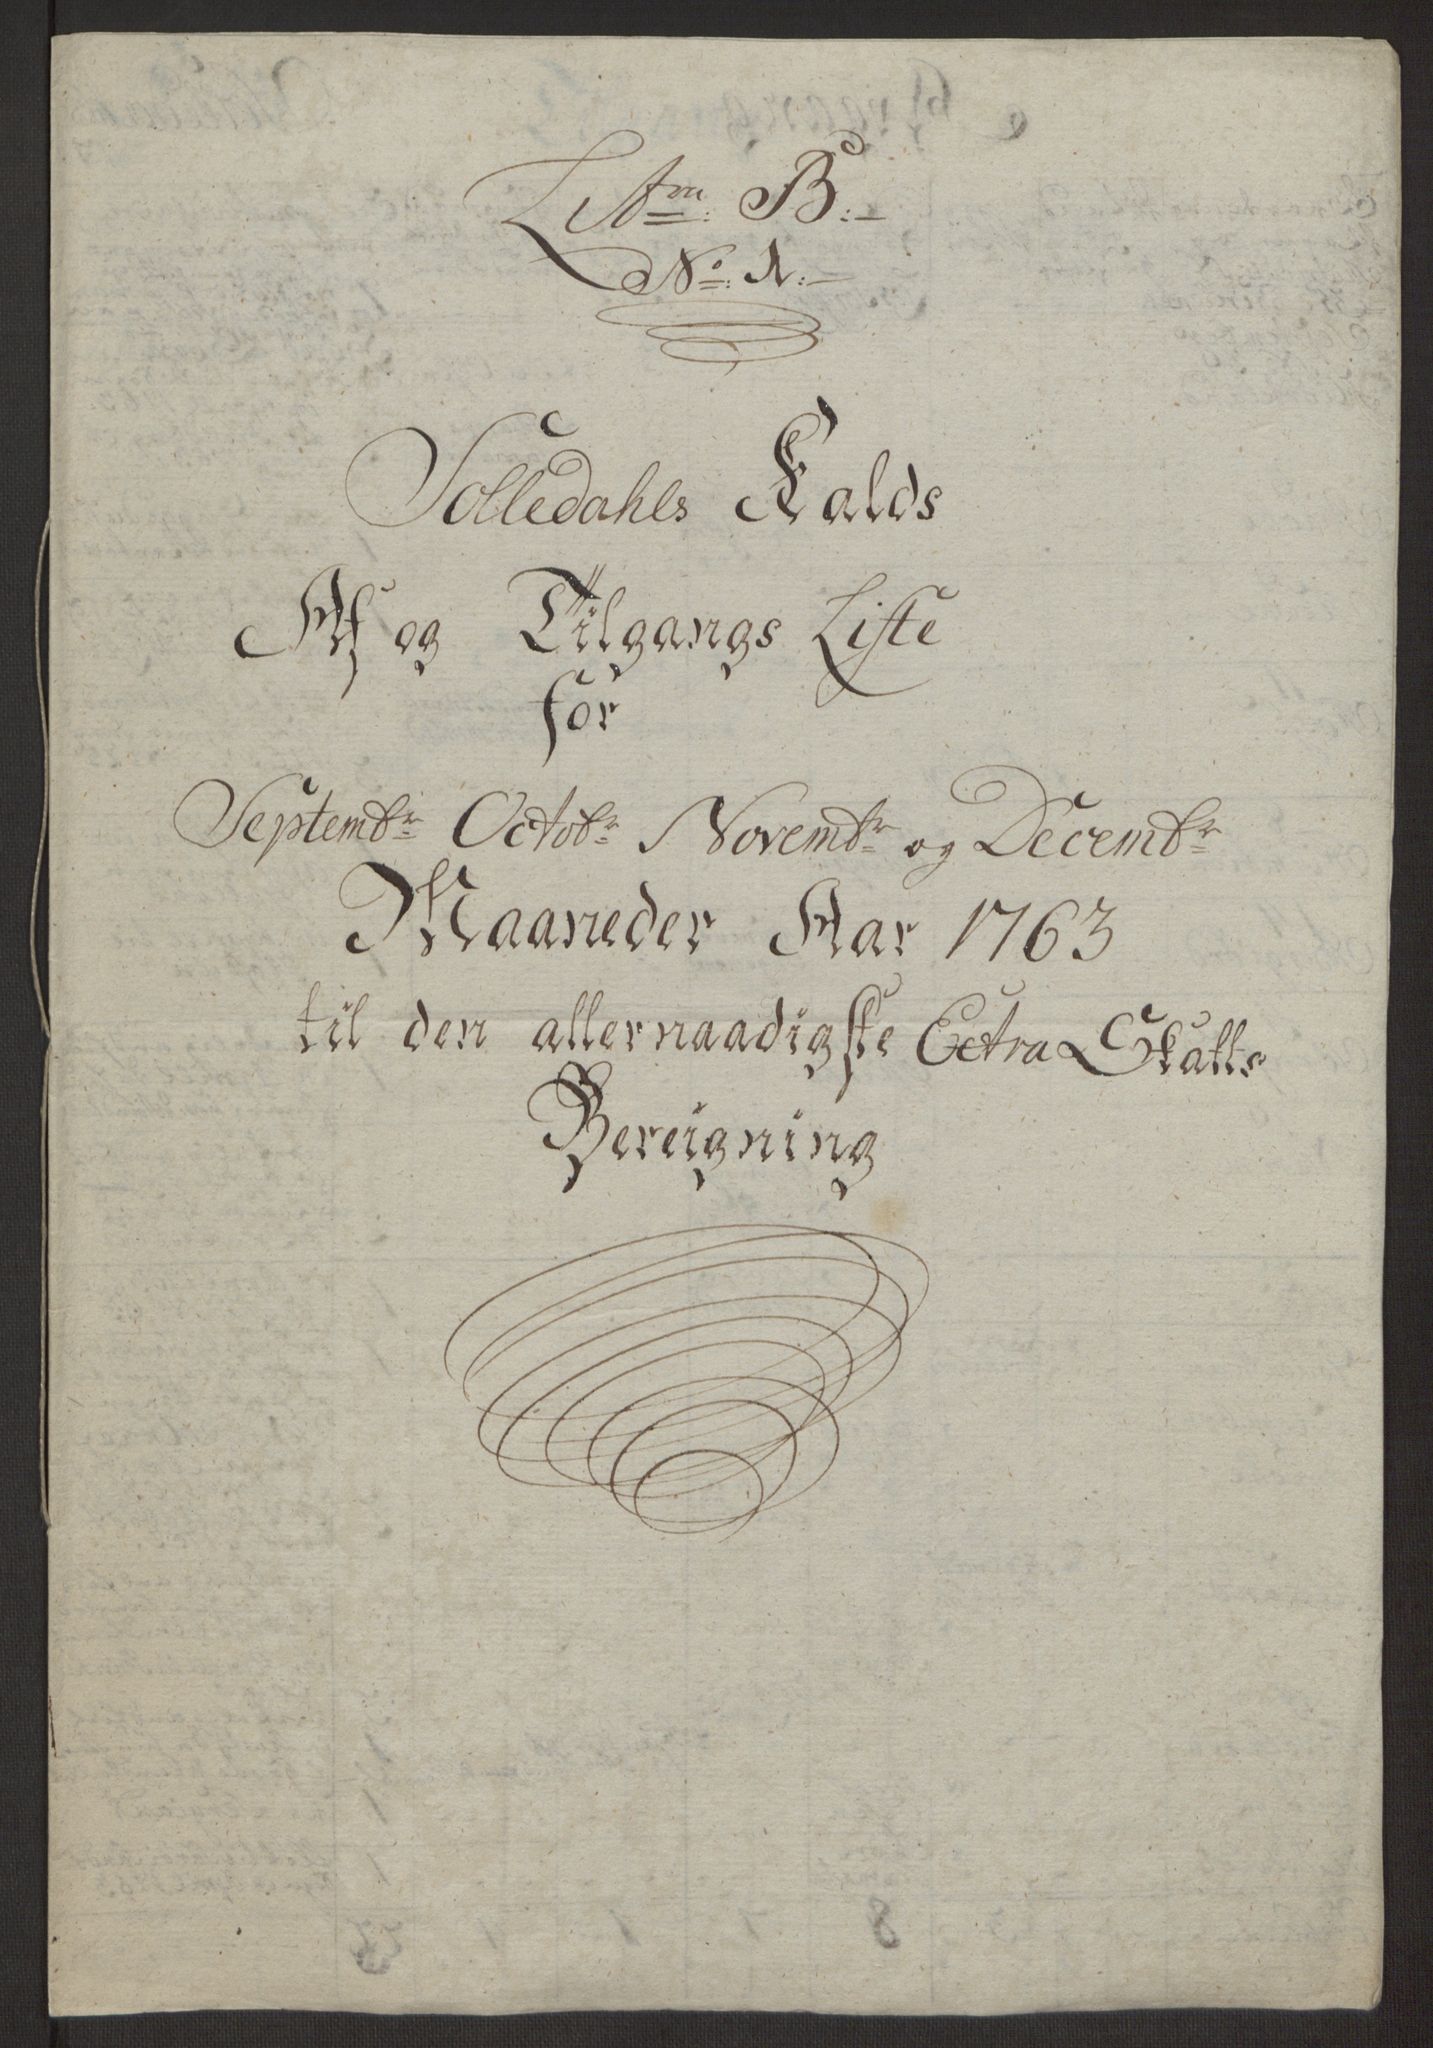 Litra: B:
No: 1.
Solledahls Kalds
Af og Tilgangs Liste
for
Septembr Octobr Novembr og Decembr
Maaneder Aar 1763
til den allernaadigste Extra Skatts
Bereigning